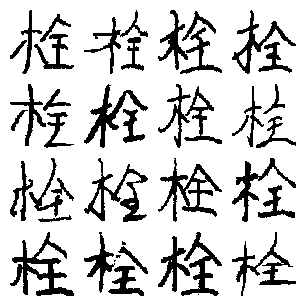 栓栓栓栓
栓栓栓栓
栓栓栓栓
栓栓栓栓